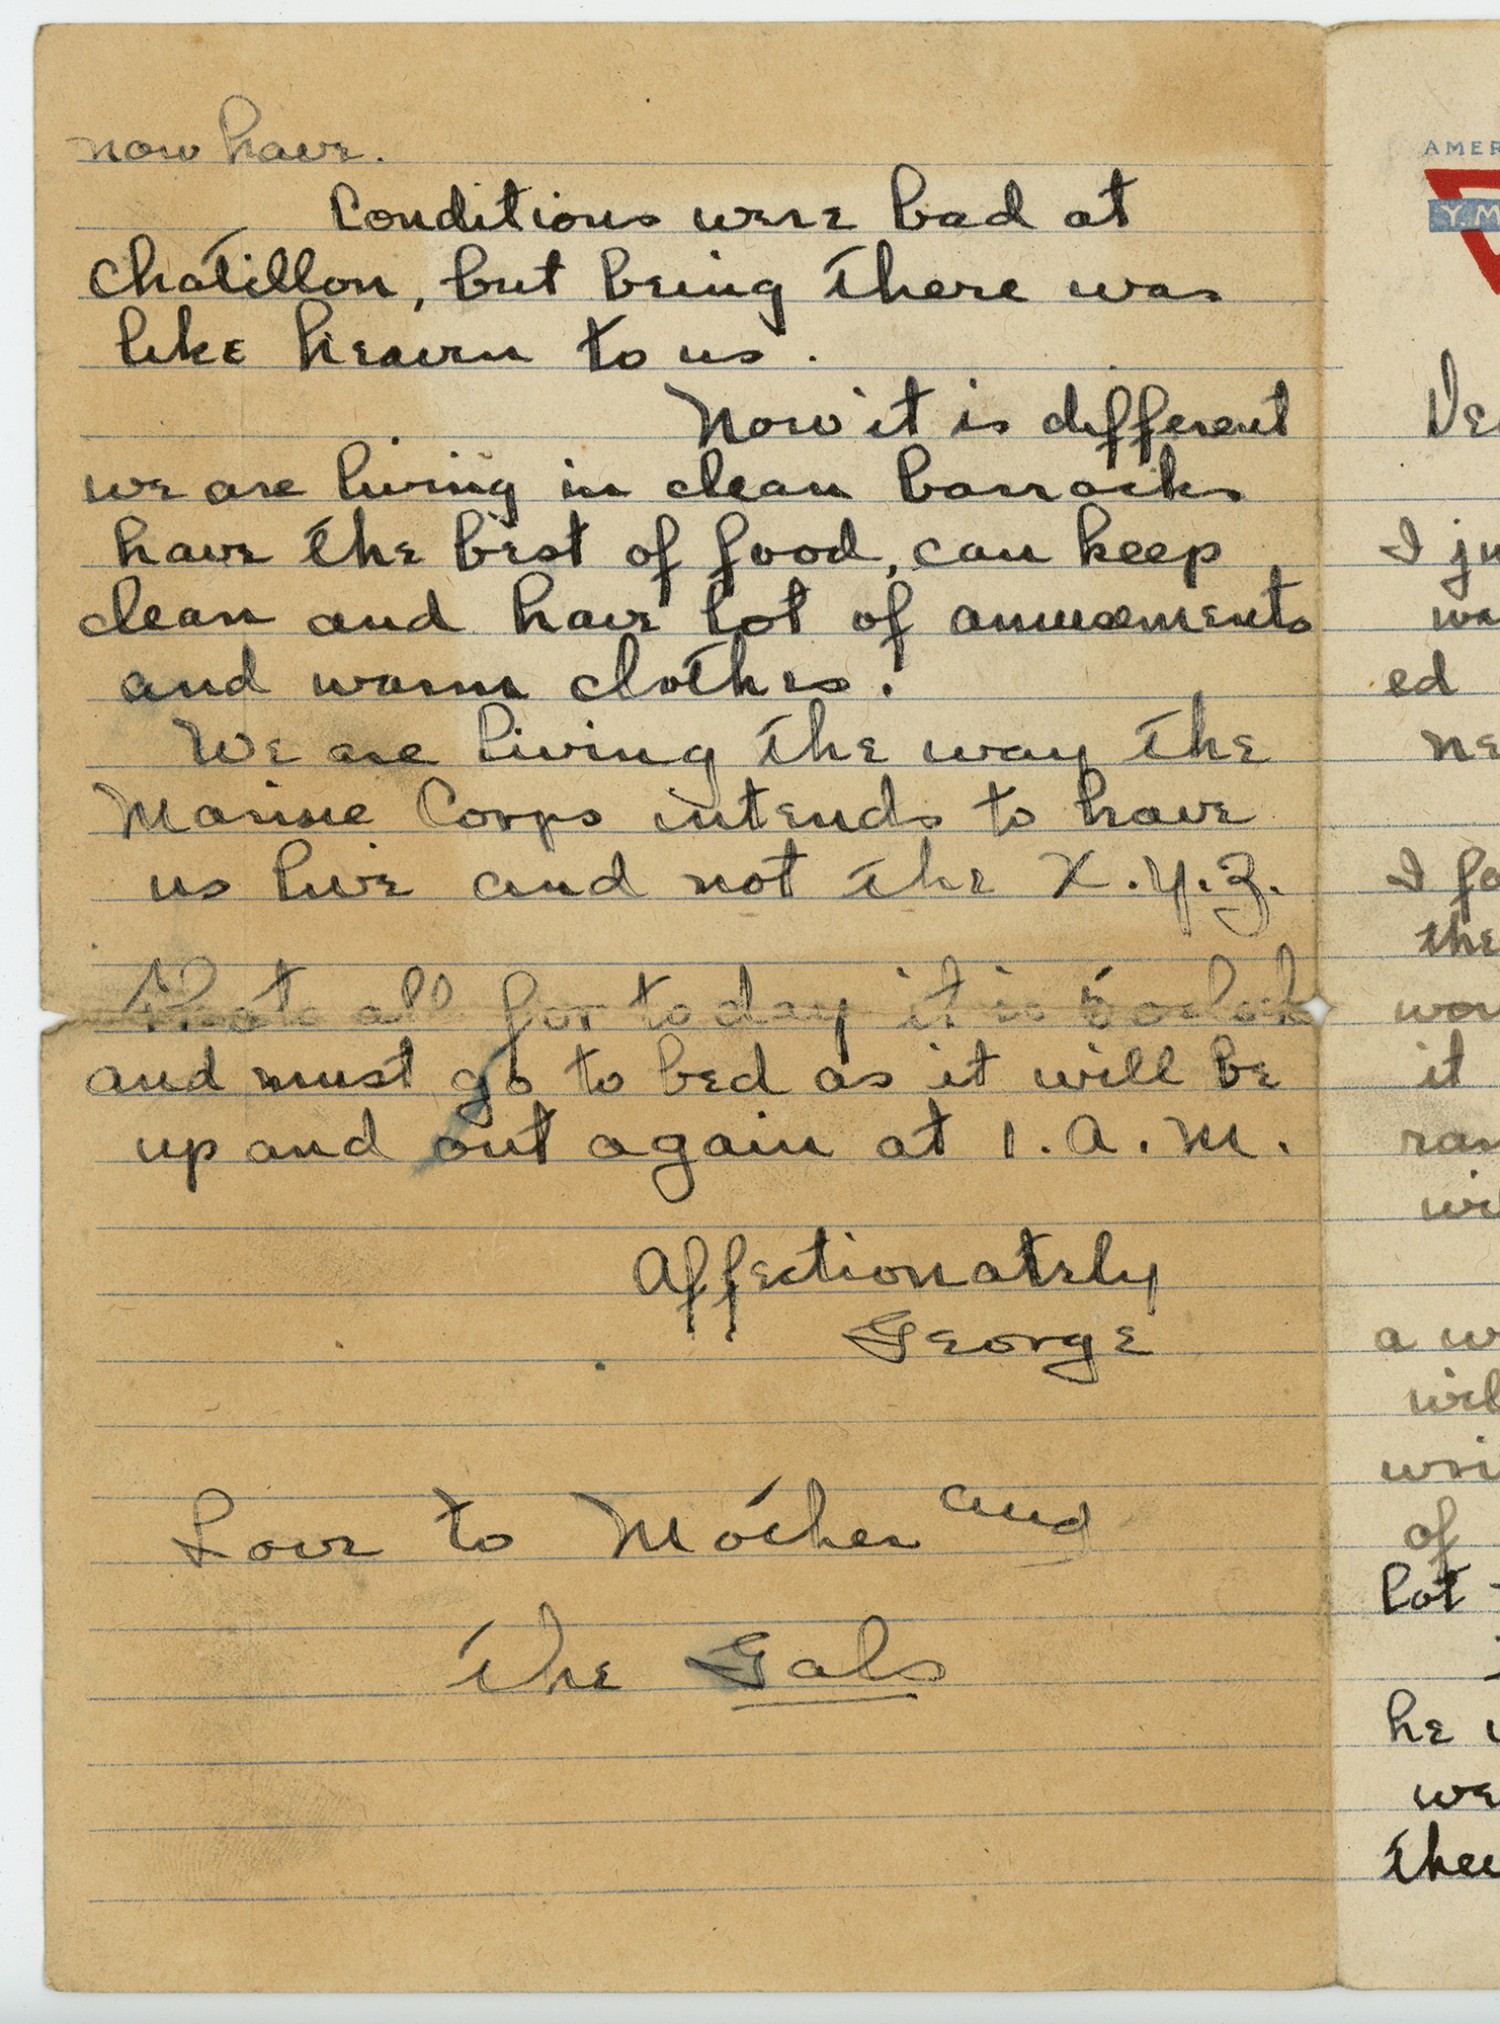 now have.
Conditions were bad at
Chatillon, but being there was
like heaven to us.
Now it is different
we are living in clean barracks
have the best of food, can keep
clean and have lot of amusements
and warm clothes.
We are living the way the
Marine Corps intends to have
us live and not the X.Y.Z.
Thats all for today it is 5 oclock
and must go to bed as it will be
up and out again at 1. A. M.
Affectionately
George
Love to Mother and
the Gals
AMER
Y.M
De
I ju
wa
ed
ne
I fo
the
wou
it
ran
wi
a w
wil
wri
of
lot
he
we
then